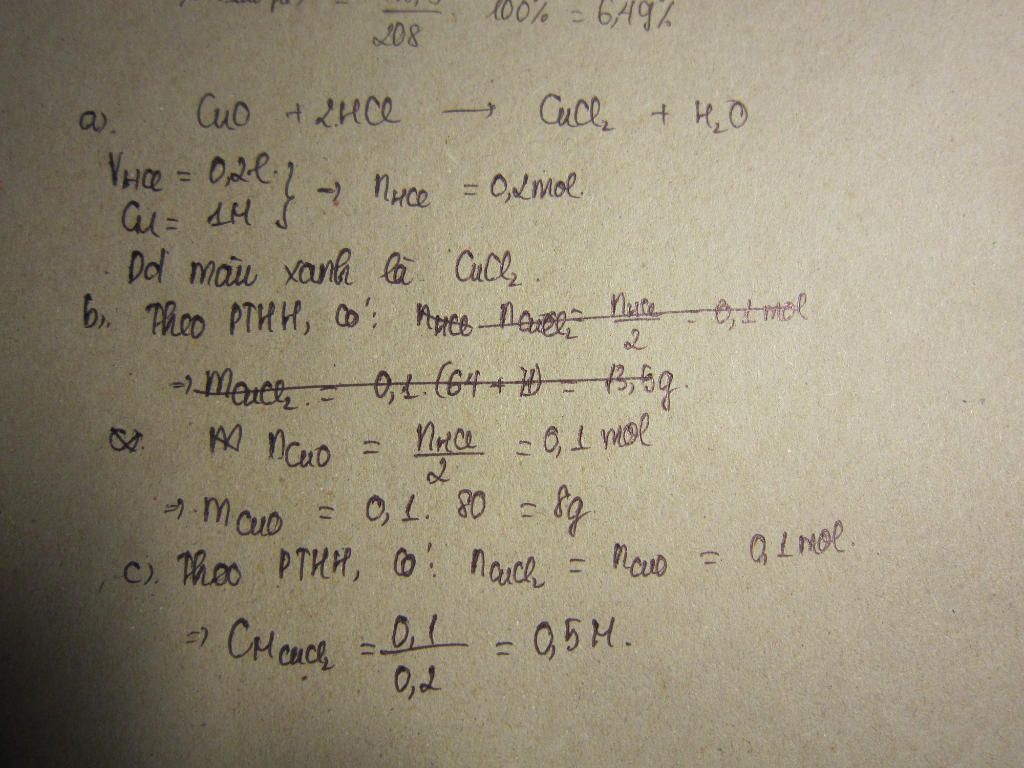 = /208 . 100% = 6,49%
a). CuO + 2HCl → CuCl₂ + H₂O
V_HCl = 0,2l. } → n_HCl = 0,2mol.
C_M = 1M
Dd màu xanh là CuCl₂.
b). Theo PTHH, có: n_HCl n_CuCl₂ = n_HCl/2 = 0,1 mol
⇒ m_CuCl₂ = 0,1.(64 + 71) = 13,5g.
n_CuO = n_HCl/2 = 0,1 mol
⇒ m_CuO = 0,1. 80 = 8g
c). Theo PTHH, có: n_CuCl₂ = n_CuO = 0,1mol.
⇒ C_M CuCl₂ = 0,1/0,2 = 0,5M.